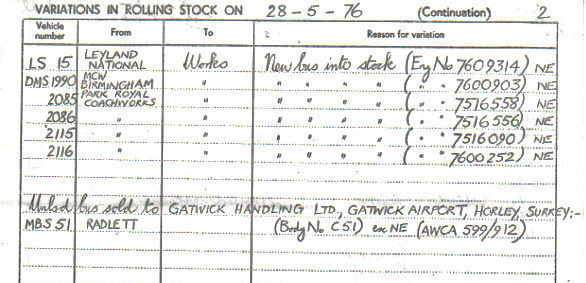 VARIATIONS IN ROLLING STOCK ON 28-5-76 (Continuation) 2
Vehicle number From To Reason for variation
LS 15 LEYLAND NATIONAL Works New bus into stock (Eng No 7609314) NE
DMS1990 MCW BIRMINGHAM " " " " " (" " 7600903) NE
2085 PARK ROYAL COACHWORKS " " " " " (" " 7516558) NE
2086 " " " " " " (" " 7516556) NE
2115 " " " " " " (" " 7516090) NE
2116 " " " " " " (" " 7600252) NE
bus sold to GATWICK HANDLING LTD, GATWICK AIRPORT, HORLEY, SURREY:-
MBS 51 RADLETT (Body No C51) ex NE (AWCA 599/912)